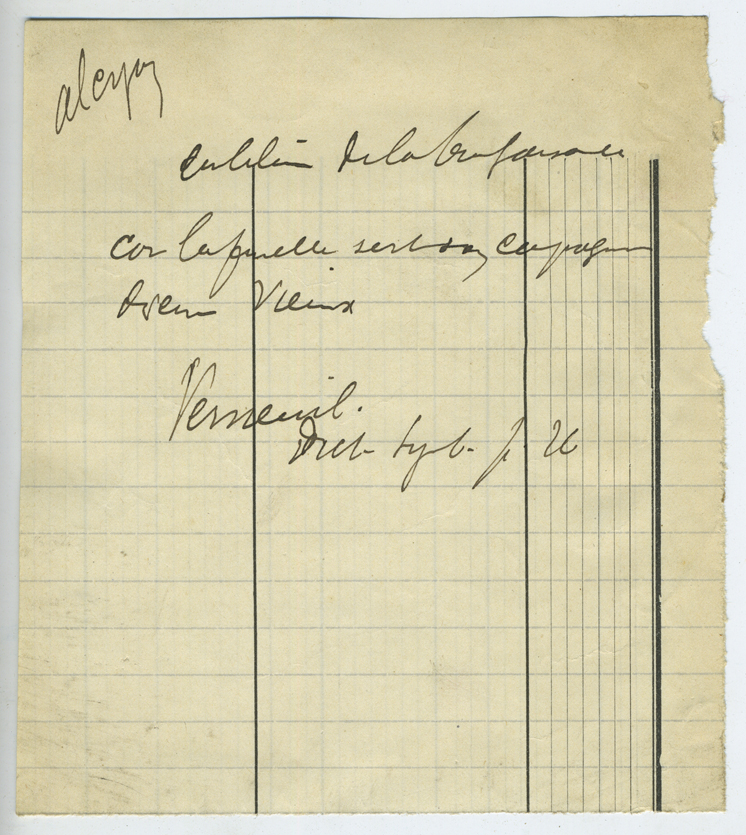 alcyon
emblème de la bienfaisance
car la femelle sert son compagnon
devenu vieux
Verneuil.
Dict. Symb. p.